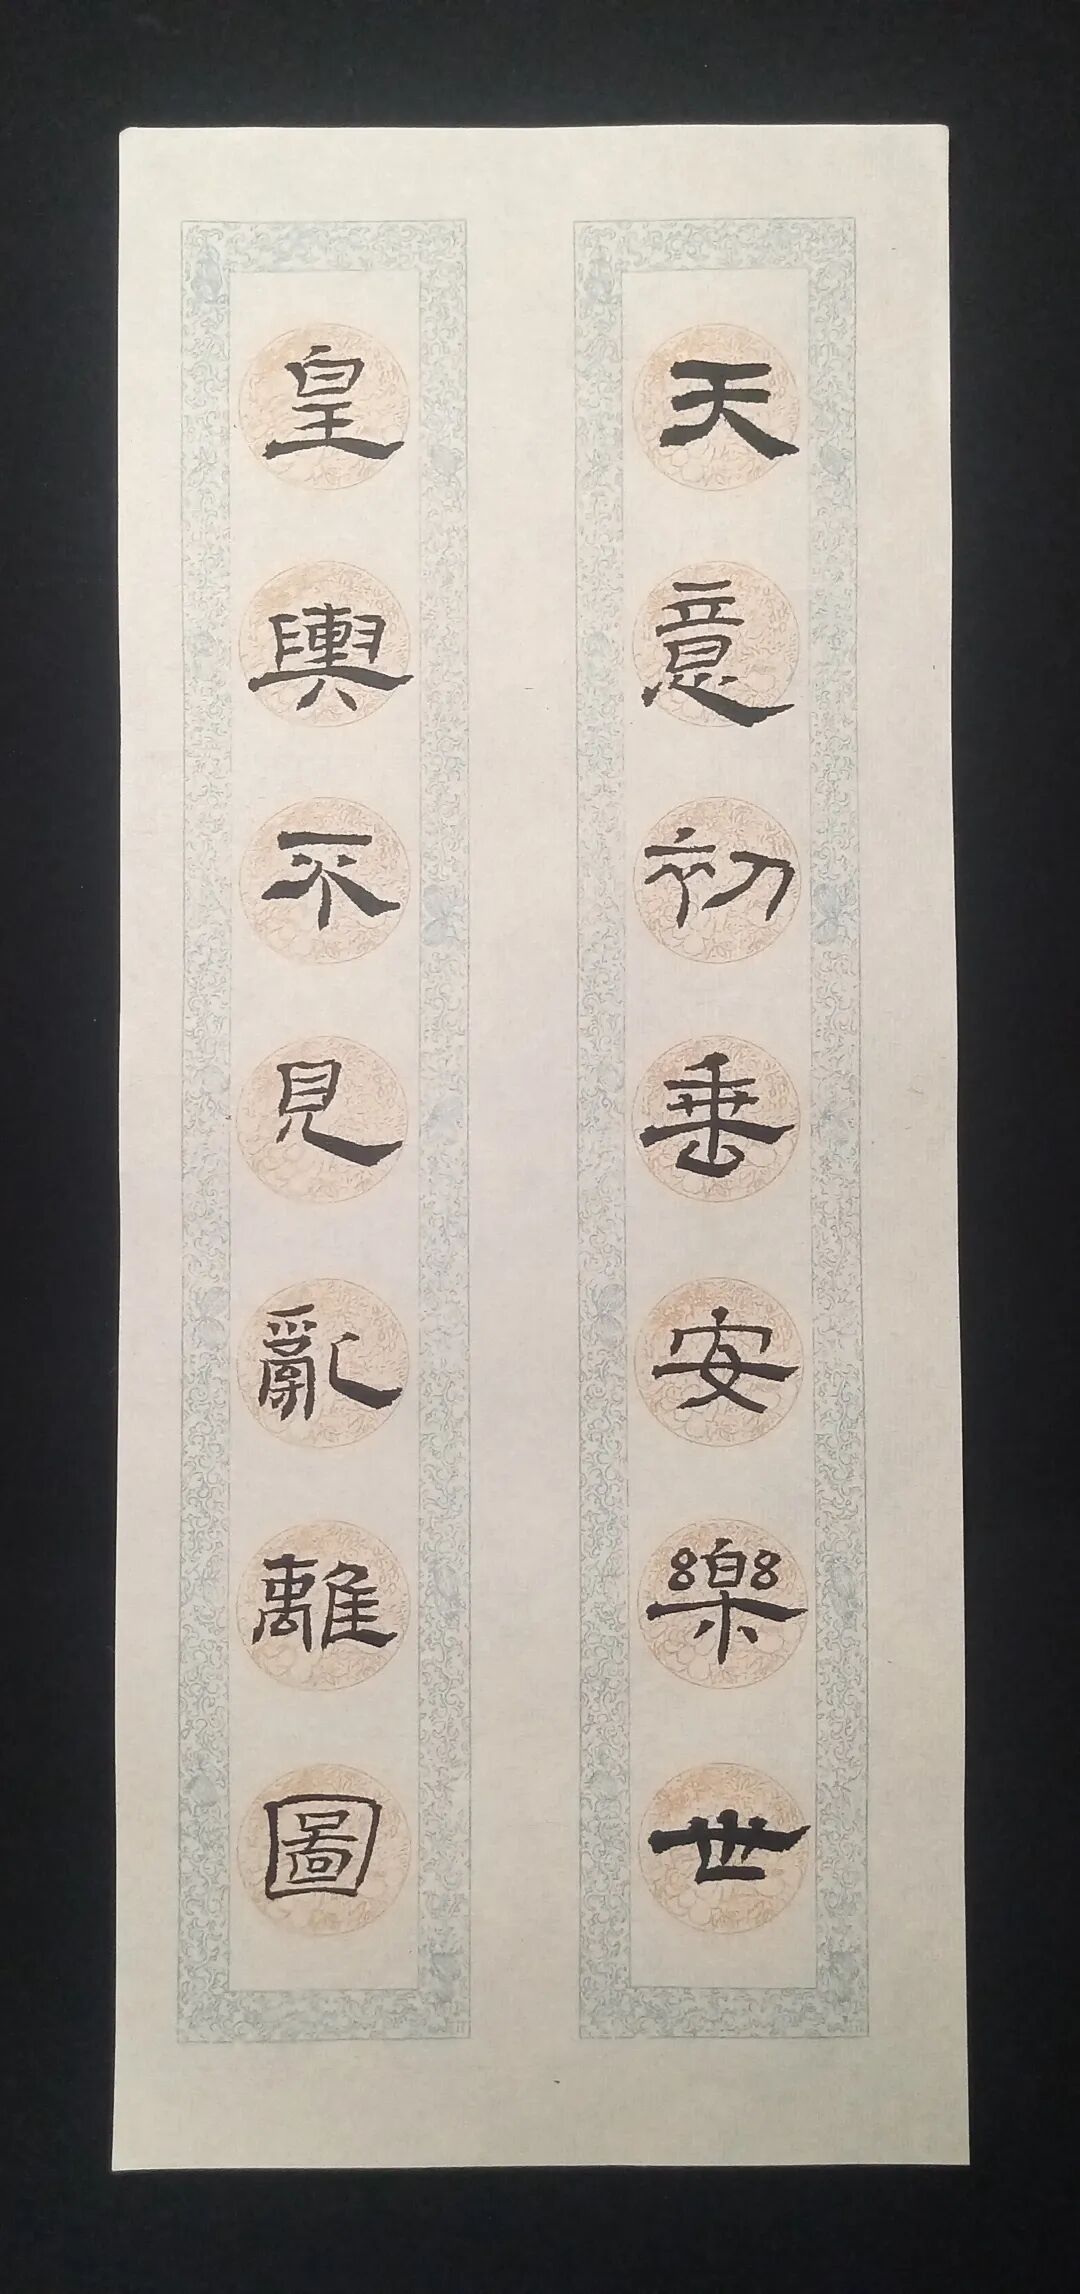 天意初垂安樂世
皇輿不見亂離圖